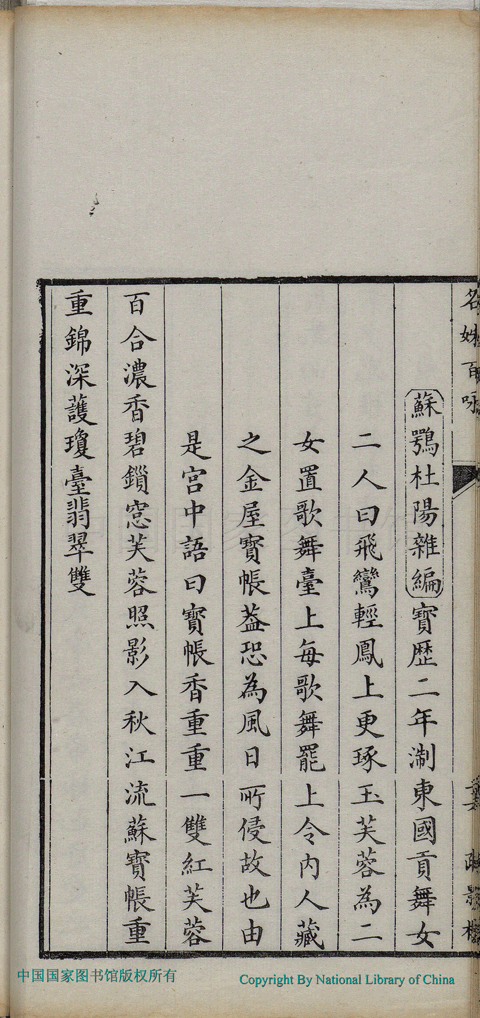 名姝百咏
蘇鶚杜陽雜編寶歴二年淛東國貢舞女
二人曰飛鸞輕鳳上更琢玉芙蓉為二
女置歌舞臺上每歌舞罷上令内人藏
之金屋寶帳葢恐為風日所侵故也由
是宫中語曰寶帳香重重一雙紅芙蓉
百合濃香碧鎖窓芙蓉照影入秋江流蘇寶帳重
重錦深護瓊臺翡翠雙
中国国家图书馆版权所有
Copyright By National Library of China